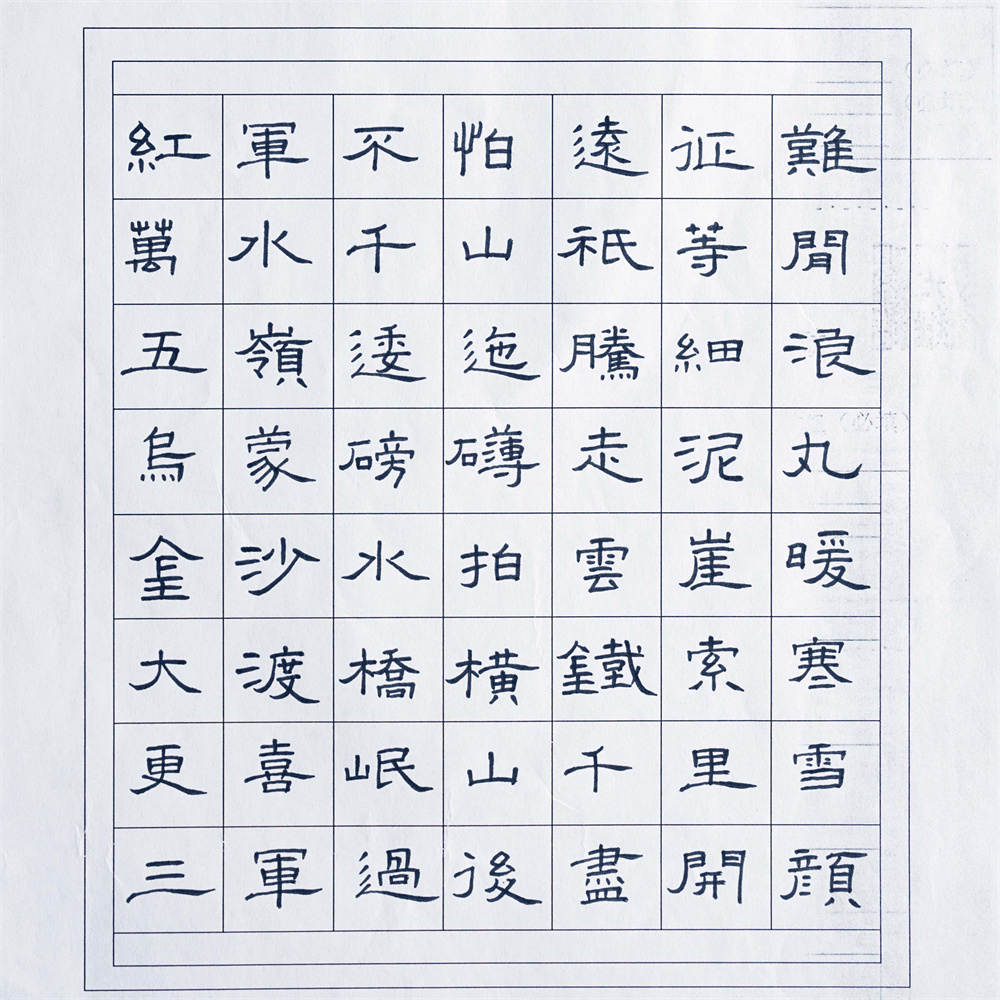 紅軍不怕遠征難
萬水千山祇等閒
五嶺逶迤騰細浪
烏蒙磅礴走泥丸
金沙水拍雲崖暖
大渡橋橫鐵索寒
更喜岷山千里雪
三軍過後盡開顏